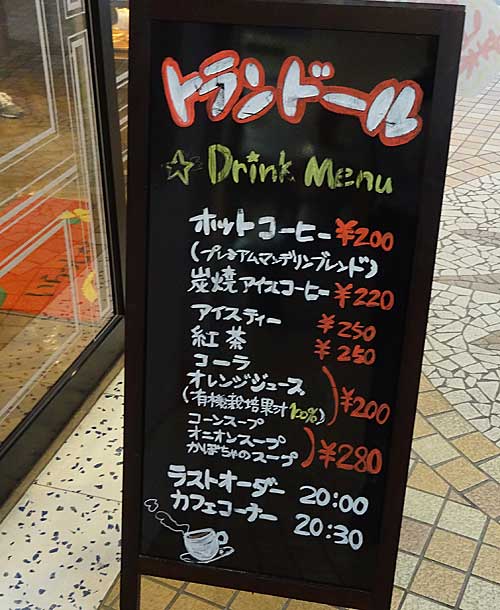 トランドール
☆ Drink Menu
ホットコーヒー ¥200
(プレミアムマンデリンブレンド)
炭焼アイスコーヒー ¥220
アイスティー ¥250
紅茶 ¥250
コーラ
オレンジジュース
(有機栽培果汁100%) ¥200
コーンスープ
オニオンスープ
かぼちゃのスープ ¥280
ラストオーダー 20:00
カフェコーナー 20:30